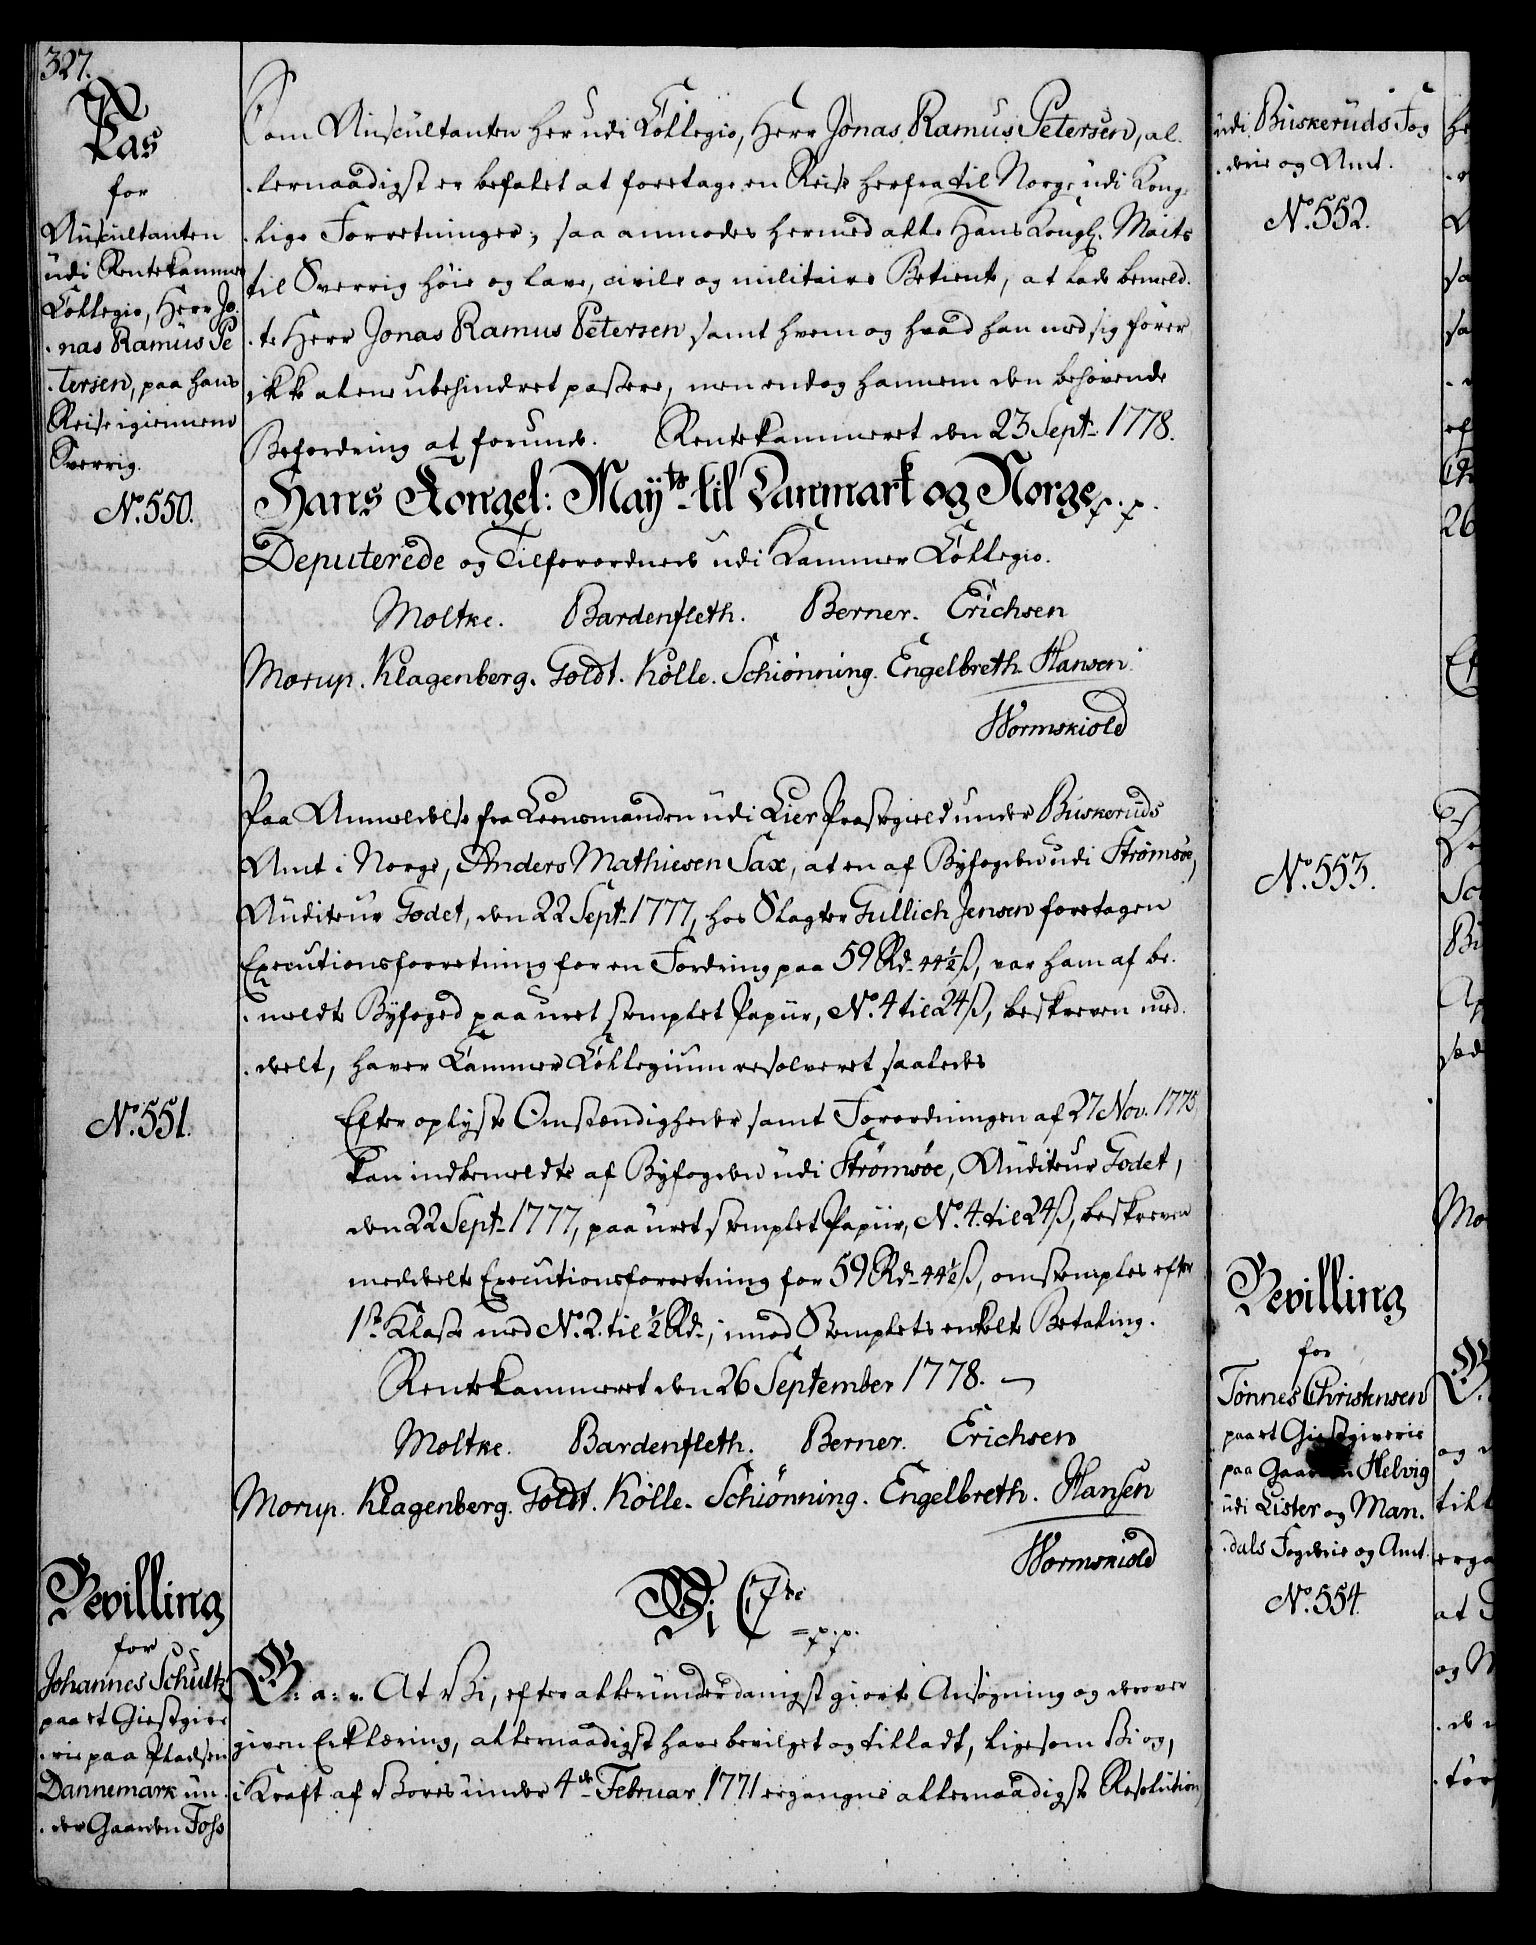 327.
Pas
for
Auscultanten
udi Rentekammer
Collegio, Herr Jo-
-nas Ramus Pe
-tersen, paa hans
Reise igiennem
Sverrig.
No. 550.
Som Auscultanten her udi Collegio, Herr Jonas Ramus Petersen, al-
-lernaadigst er befalet at foretage en Reise herfra til Norge udi Kong-
-lige Forretninger; saa anmodes hermed alle Hans Kongl. Maits
til Sverrig høie og lave, civile og militaire Betiente, at lade bemeld-
-te Herr Jonas Ramus Petersen samt hvem og hvad han med sig fører
ikke alene ubehindret passere, men endog hannem den behøvende
Befordring at forunde. Rentekammeret den 23 Sept. 1778.
Hans Kongel: Mayts til Danmark og Norge p. p.
Deputerede og Tilforordnede udi Kammer Collegio.
Moltke. Bardenfleth. Berner. Erichsen
Morup. Klagenberg. Goldt. Kölle. Schiønning. Engelbreth. Hansen.
Wormskiold
Paa Anmeldelse fra Leensmanden udi Lier Præstegield under Buskeruds
Amt i Norge, Anders Mathiesen Sax, at en af Byfogden udi Strømsøe,
Auditeur Godet, den 22 Sept. 1777, hos Slagter Gullich Jensen foretagen
Executionsforretning for en Fordring paa 59 Rd. 44½ ß, var ham af be-
-meldte Byfoged paa uret stemplet Papiir, No. 4 til 24 ß, beskreven med-
-deelt, haver Cammer Collegium resolveret saaledes
No. 551.
Efter oplyste Omstændigheder samt Forordningen af 27 Nov. 1775,
kan indbemeldte af Byfogden udi Strømsøe, Auditeur Godet,
den 22 Sept. 1777, paa uret stemplet Papiir, No. 4. til 24 ß, beskreven
meddeelte Executionsforretning for 59 Rd. 44½ ß, omstemples efter
1ste Klasse med No. 2. til ½ Rd., imod Stemplets enkelte Betaling.
Rentekammeret den 26 September 1778.
Moltke. Bardenfleth. Berner. Erichsen
Morup. Klagenberg. Goldt. Kölle. Schiønning. Engelbreth. Hansen
Wormskiold
Bevilling
for
Johannes Schultz
paa et Giestgive
-rie paa Pladsen
Dannemark un-
-der Gaarden Foss
Vi C 7de
p. p.
G. a: v. At Vi, efter allerunderdanigst giorte Ansøgning og derover
given Erklæring, allernaadigst have bevilget og tilladt, ligesom Vi og,
i Kraft af Vores under 4de Februar 1771 ergangne allernaadigste Resolution,
udi Buskeruds Fog
-derie og Amt.
No. 552.
No. 553.
Bevilling
for
Tønnes Christensen
paa et Giestgiverie
paa Gaarden Helvig
udi Lister og Man-
-dals Fogderie og Amt.
No. 554.